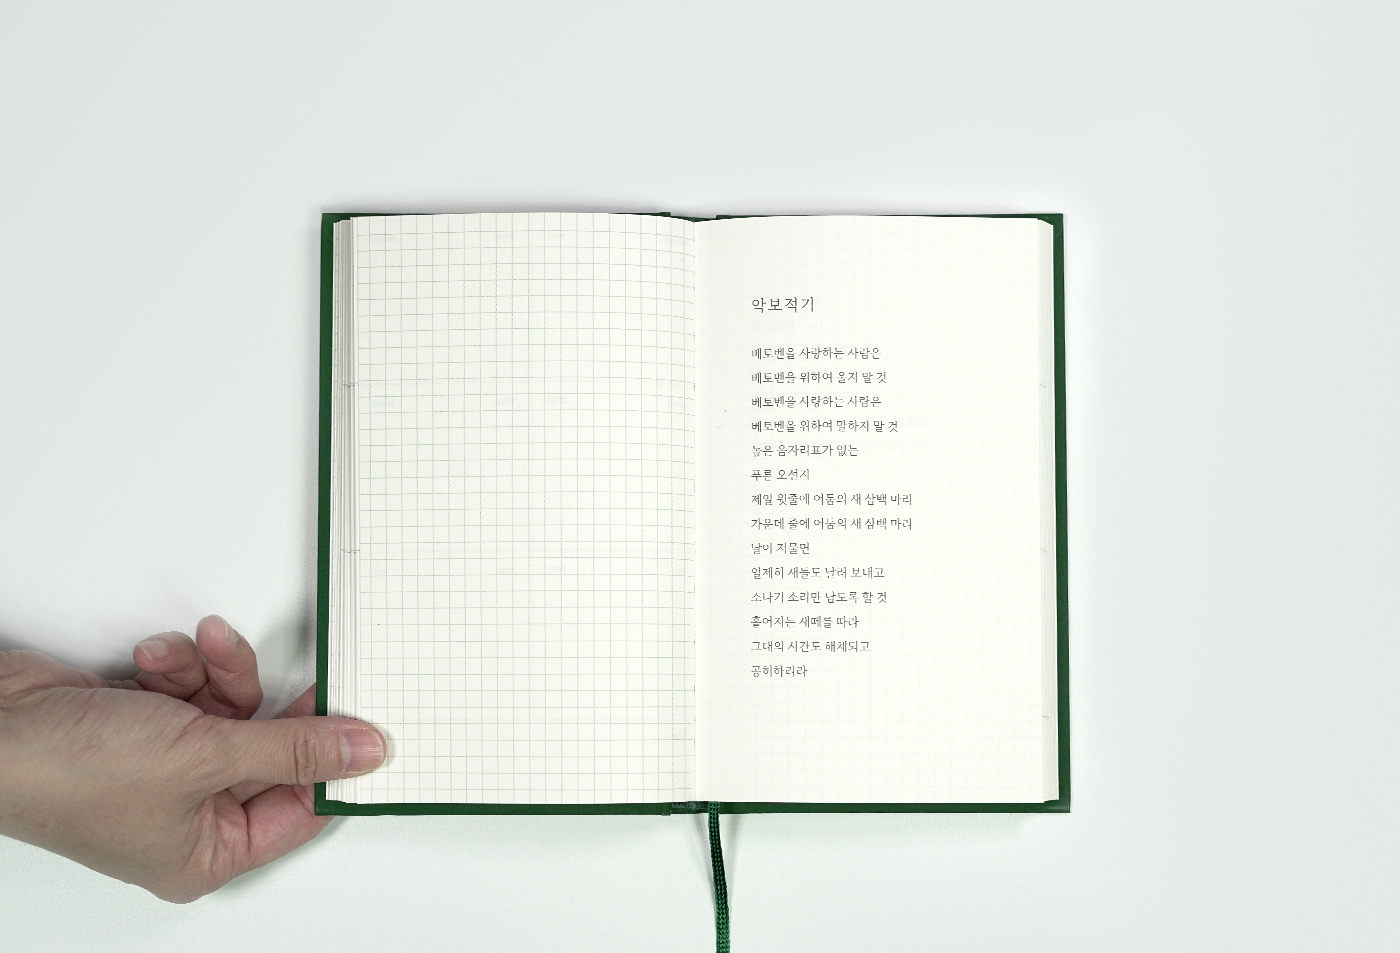 악보적기
베토벤을 사랑하는 사람은
베토벤을 위하여 울지 말 것
베토벤을 사랑하는 사람은
베토벤을 위하여 말하지 말 것
높은 음자리표가 없는
푸른 오선지
제일 윗줄에 어둠의 새 삼백 마리
가운데 줄에 어둠의 새 삼백 마리
날이 저물면
일제히 새들도 날려 보내고
소나기 소리만 남도록 할 것
흩어지는 새떼를 따라
그대의 시간도 해체되고
공허하리라